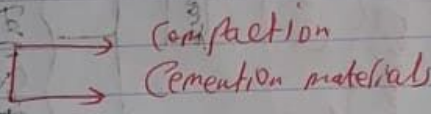 Compaction
Cemention materials